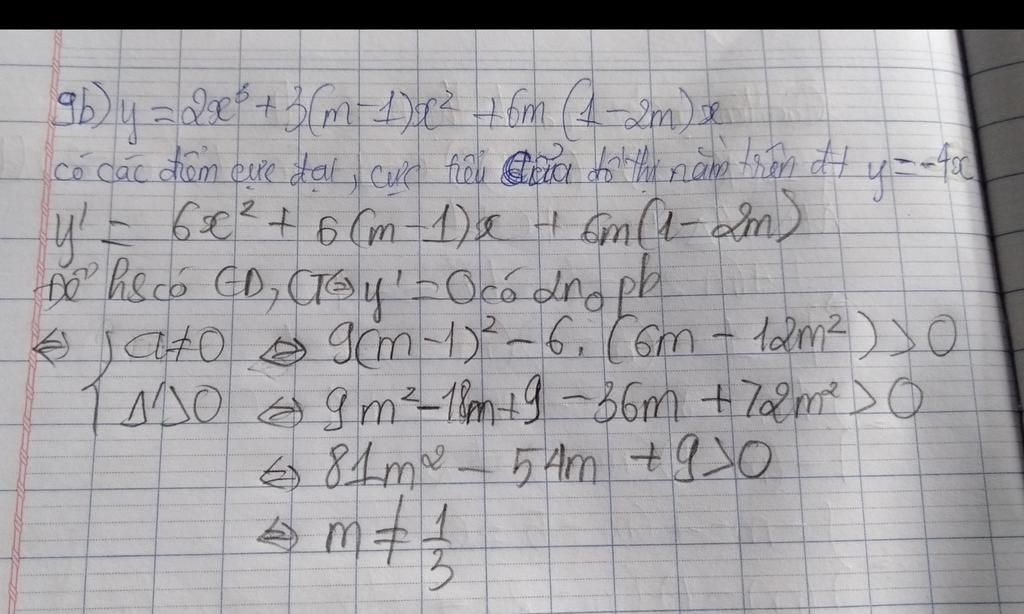 9b) y = 2x³ + 3(m-1)x² + 6m(1-2m)x
có các điểm cực đại, cực tiểu của đồ thị nằm trên đt y = -4x
y' = 6x² + 6(m-1)x + 6m(1-2m)
Để hs có CĐ, CT ⇔ y' = 0 có 2no pb
⇔ { a≠0 ⇔ 9(m-1)² - 6.(6m - 12m²) > 0
Δ'>0 ⇔ 9m² - 18m + 9 - 36m + 72m² > 0
⇔ 81m² - 54m + 9 > 0
⇔ m ≠ 1/3